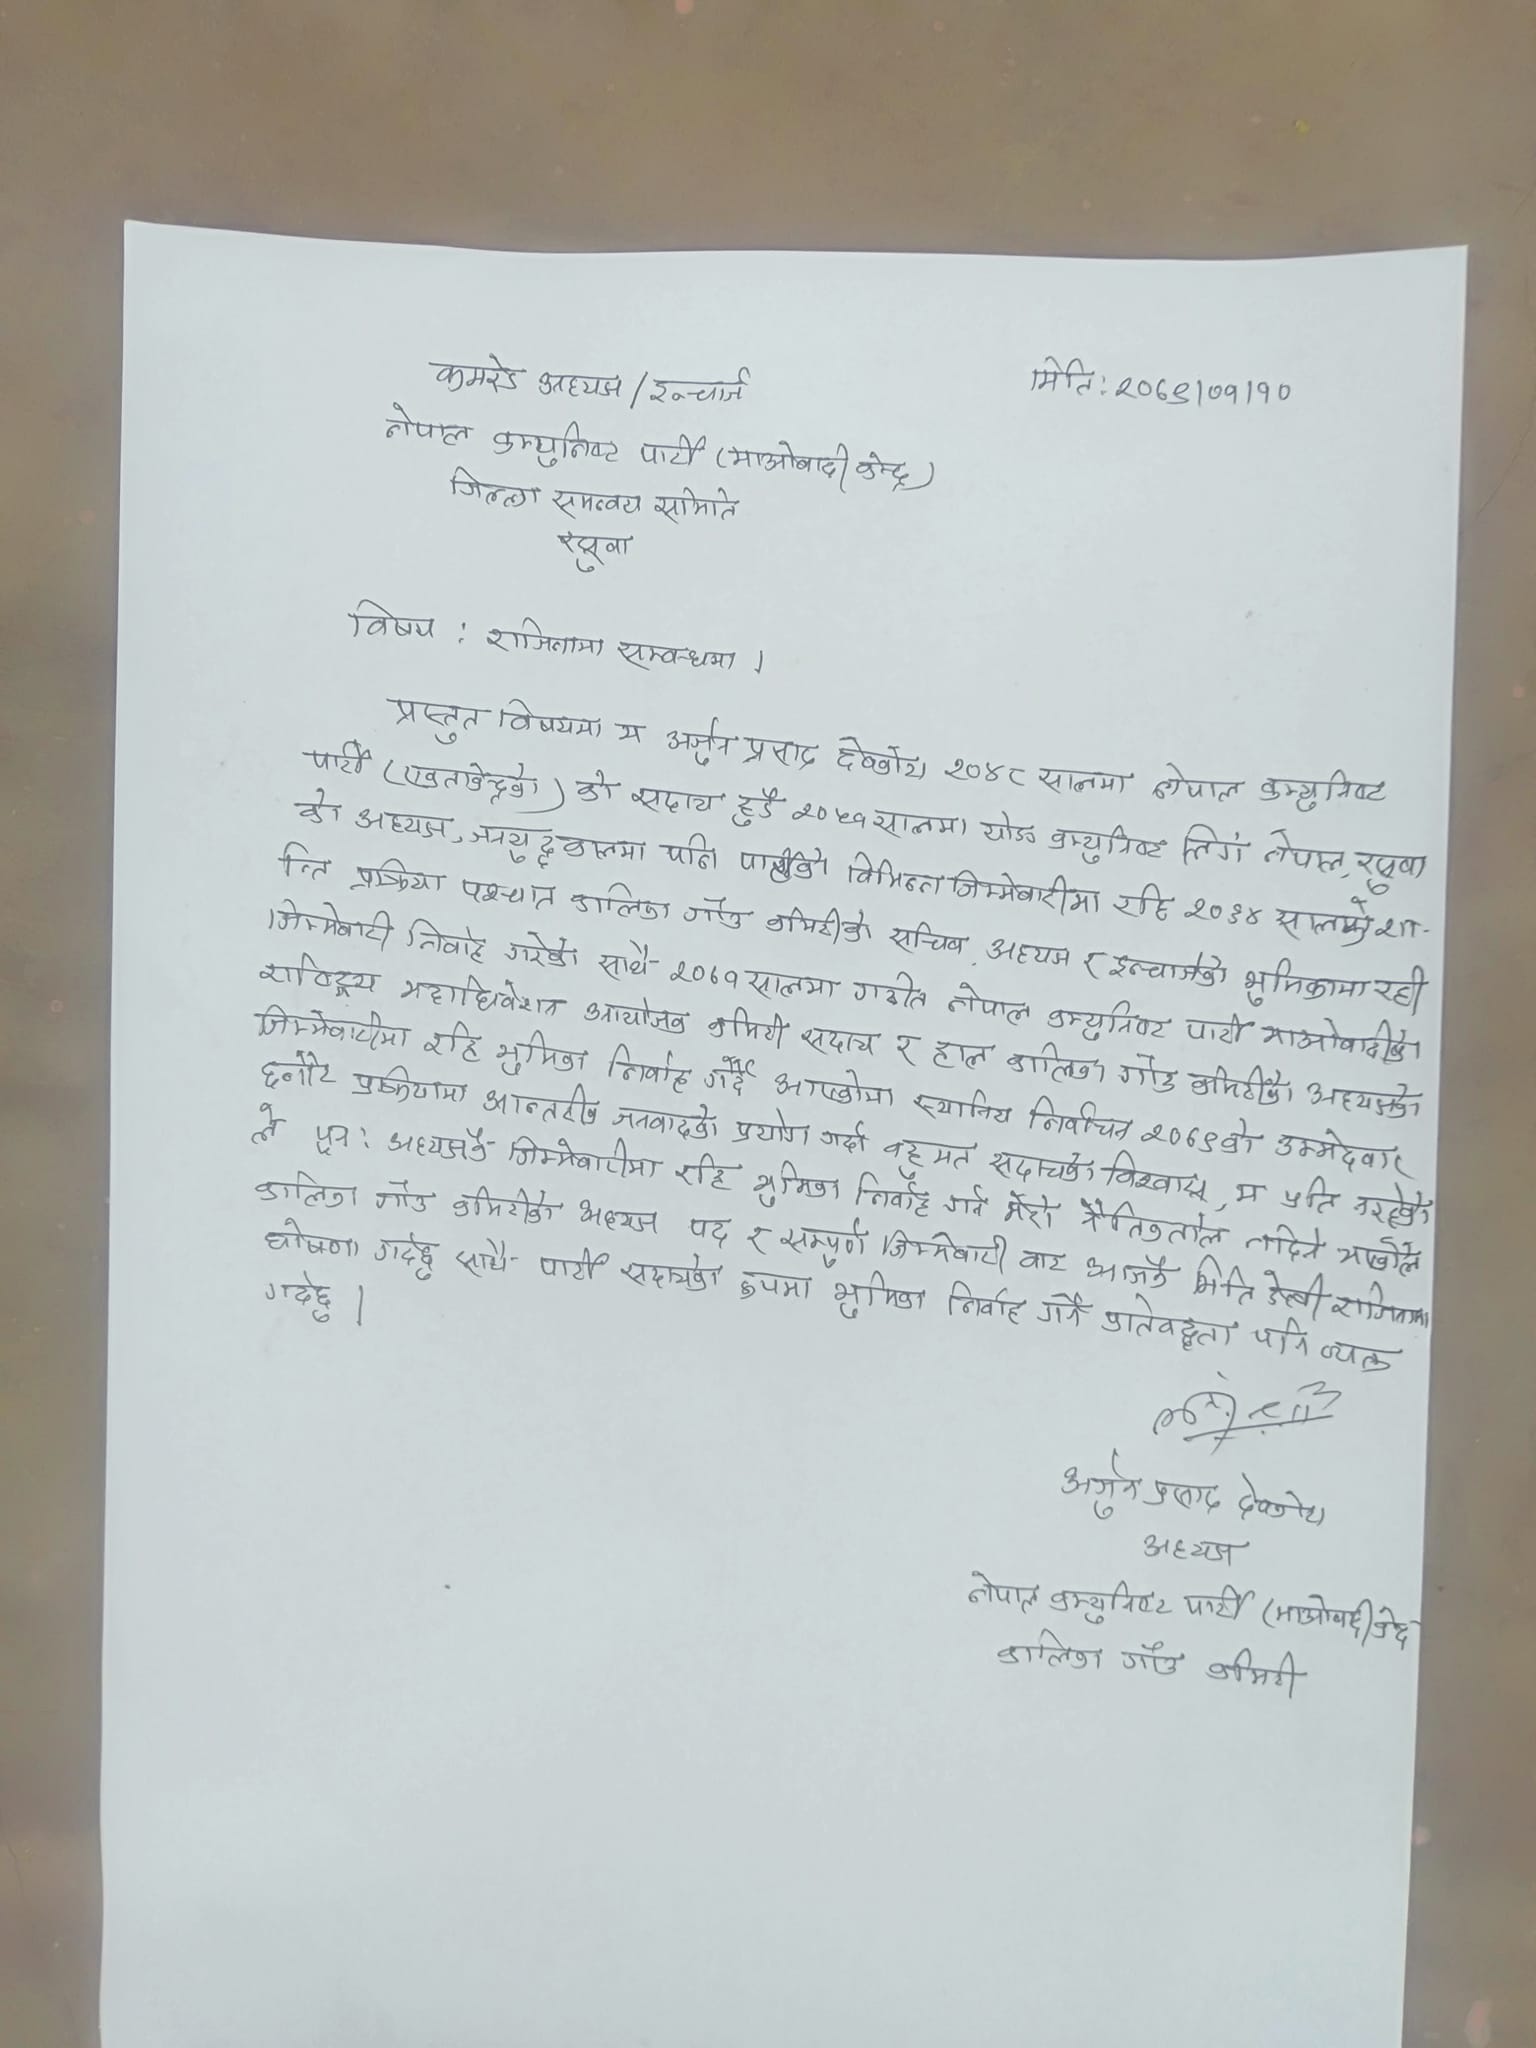 कमरेड अध्यक्ष/इन्चार्ज
मिति: २०७९/०१/१०
नेपाल कम्युनिष्ट पार्टी (माओवादी केन्द्र)
जिल्ला समन्वय समिति
रसुवा
विषय : राजिनामा सम्बन्धमा ।
प्रस्तुत विषयमा म अर्जुन प्रसाद देवकोटा २०४८ सालमा नेपाल कम्युनिष्ट
पार्टी (एकताकेन्द्रको) को सदस्य हुदै २०५१ सालमा योङ कम्युनिष्ट लिग नेपाल, रसुवा
को अध्यक्ष, जनयुद्धकालमा पनि पार्टीको विभिन्न जिम्मेवारीमा रहि २०६४ सालको शा-
न्ति प्रक्रिया पश्चात कालिका गाँउ कमिटीको सचिव, अध्यक्ष र इन्चार्जको भुमिकामा रही
जिम्मेवारी निर्वाह गरेको साथै २०७१ सालमा गठीत नेपाल कम्युनिष्ट पार्टी माओवादीको
राष्ट्रिय महाधिवेशन आयोजक कमिटी सदस्य र हाल कालिका गाँउ कमिटीको अध्यक्षको
जिम्मेवारीमा रहि भुमिका निर्वाह गर्दै आएकोमा स्थानिय निर्वाचन २०७९ को उम्मेदवार
छनौट प्रक्रियामा आन्तरीक जनवादको प्रयोग गर्दा बहुमत सदस्यको विश्वास, म प्रति नरहेको
ले पून: अध्यक्षकै जिम्मेवारीमा रहि भुमिका निर्वाह गर्न मेरो नैतिकताले नदिने भएकोले
कालिका गाँउ कमिटीको अध्यक्ष पद र सम्पुर्ण जिम्मेवारी बाट आजकै मिति देखी राजिनामा
घोषणा गर्दछु साथै पार्टी सदस्यको रुपमा भुमिका निर्वाह गर्ने प्रतिवद्धता पनि व्यक्त
गर्दछु ।
अर्जुन प्रसाद देवकोटा
अध्यक्ष
नेपाल कम्युनिष्ट पार्टी (माओवादी केन्द्र
कालिका गाँउ कमिटी